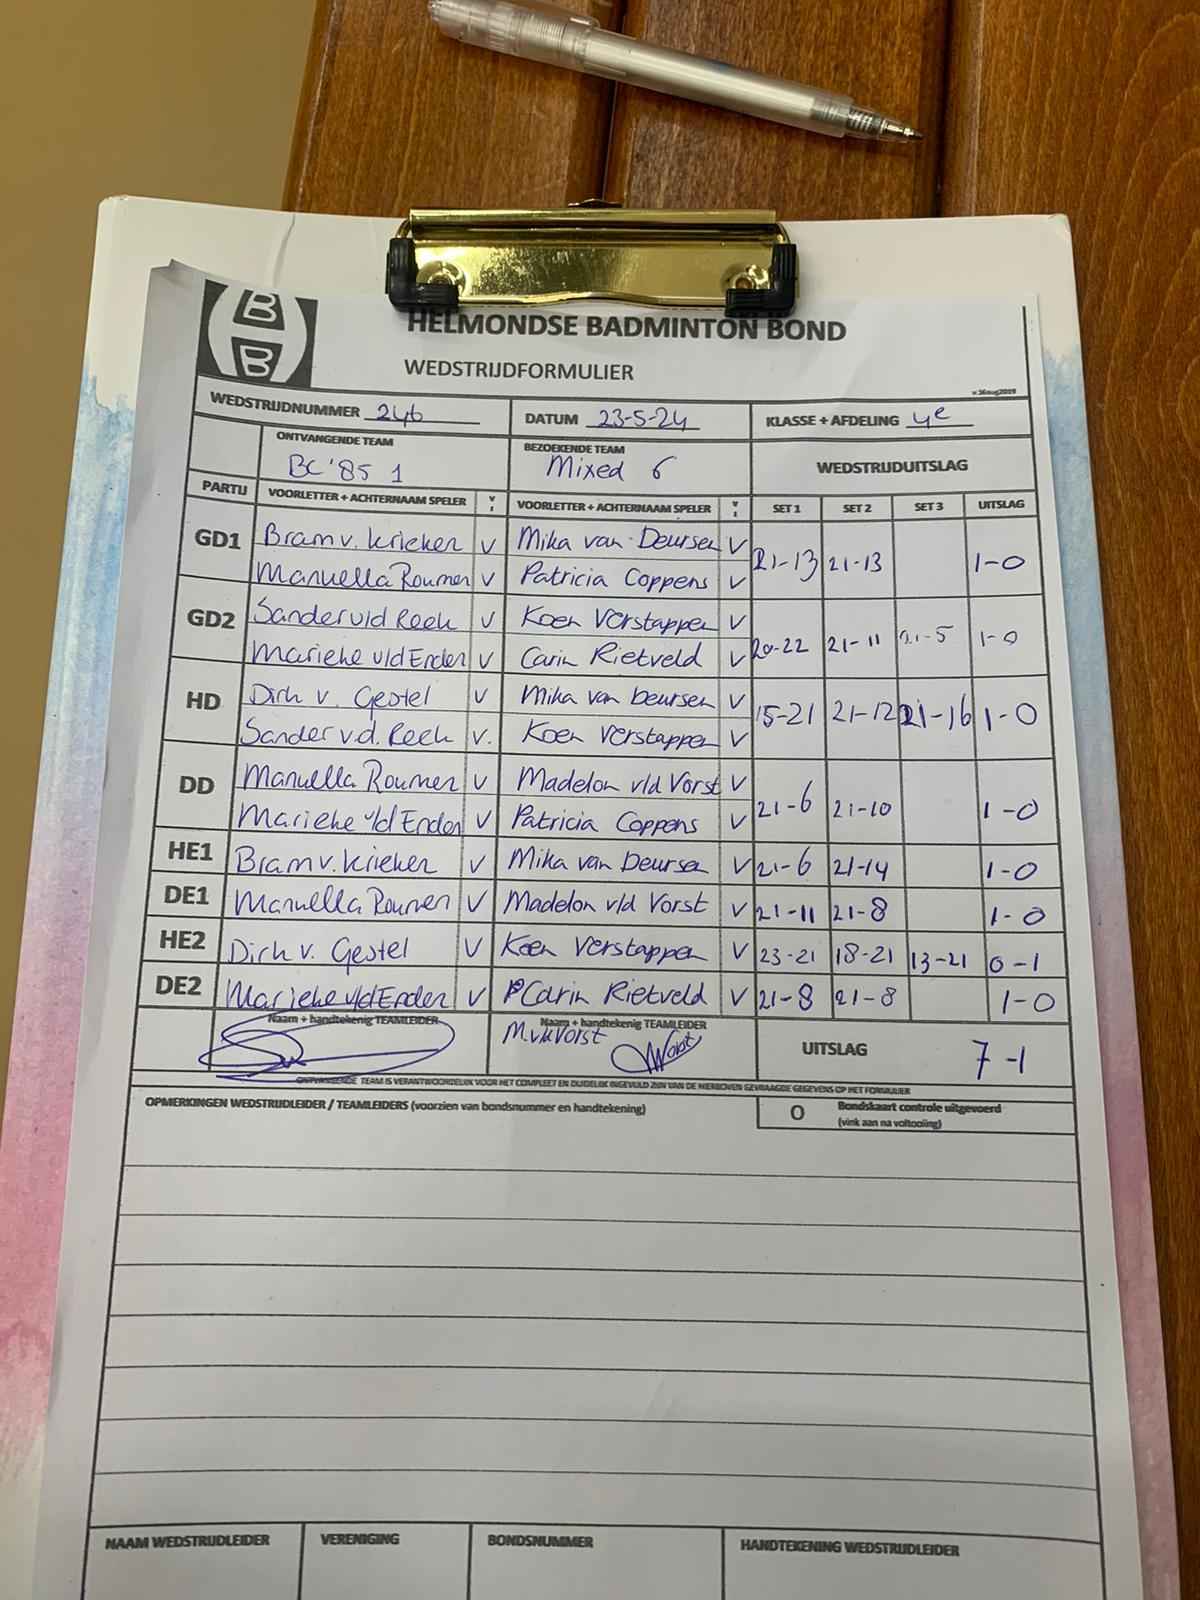 B
B
HELMONDSE BADMINTON BOND
WEDSTRIJDFORMULIER
v.26aug2019
WEDSTRIJDNUMMER 246 DATUM 23-5-24 KLASSE + AFDELING 4e
ONTVANGENDE TEAM BEZOEKENDE TEAM WEDSTRIJDUITSLAG
BC '85 1 Mixed 6
PARTIJ VOORLETTER + ACHTERNAAM SPELER V VOORLETTER + ACHTERNAAM SPELER V SET 1 SET 2 SET 3 UITSLAG
GD1 Bram v. Krieken V Mika van Deursen V 21-13 21-13 1-0
Manuella Roumen V Patricia Coppens V
GD2 Sander v/d Reek V Koen Verstappen V 20-22 21-11 21-5 1-0
Marieke v/d Enden V Carin Rietveld V
HD Dirk v. Gestel V Mika van Deursen V 15-21 21-12 21-16 1-0
Sander v.d. Reek V. Koen Verstappen V
DD Manuella Roumen V Madelon v/d Vorst V 21-6 21-10 1-0
Marieke v/d Enden V Patricia Coppens V
HE1 Bram v. Krieken V Mika van Deursen V 21-6 21-14 1-0
DE1 Manuella Roumen V Madelon v/d Vorst V 21-11 21-8 1-0
HE2 Dirk v. Gestel V Koen Verstappen V 23-21 18-21 13-21 0-1
DE2 Marieke v/d Enden V Carin Rietveld V 21-8 21-8 1-0
Naam + handtekenig TEAMLEIDER Naam + handtekenig TEAMLEIDER UITSLAG 7-1
M.v/d Vorst
ONTVANGENDE TEAM IS VERANTWOORDELIJK VOOR HET COMPLEET EN DUIDELIJK INGEVULD ZIJN VAN DE HIERBOVEN GEVRAAGDE GEGEVENS OP HET FORMULIER
OPMERKINGEN WEDSTRIJDLEIDER / TEAMLEIDERS (voorzien van bondsnummer en handtekening) O Bondskaart controle uitgevoerd
(vink aan na voltooiing)
NAAM WEDSTRIJDLEIDER VERENIGING BONDSNUMMER HANDTEKENING WEDSTRIJDLEIDER